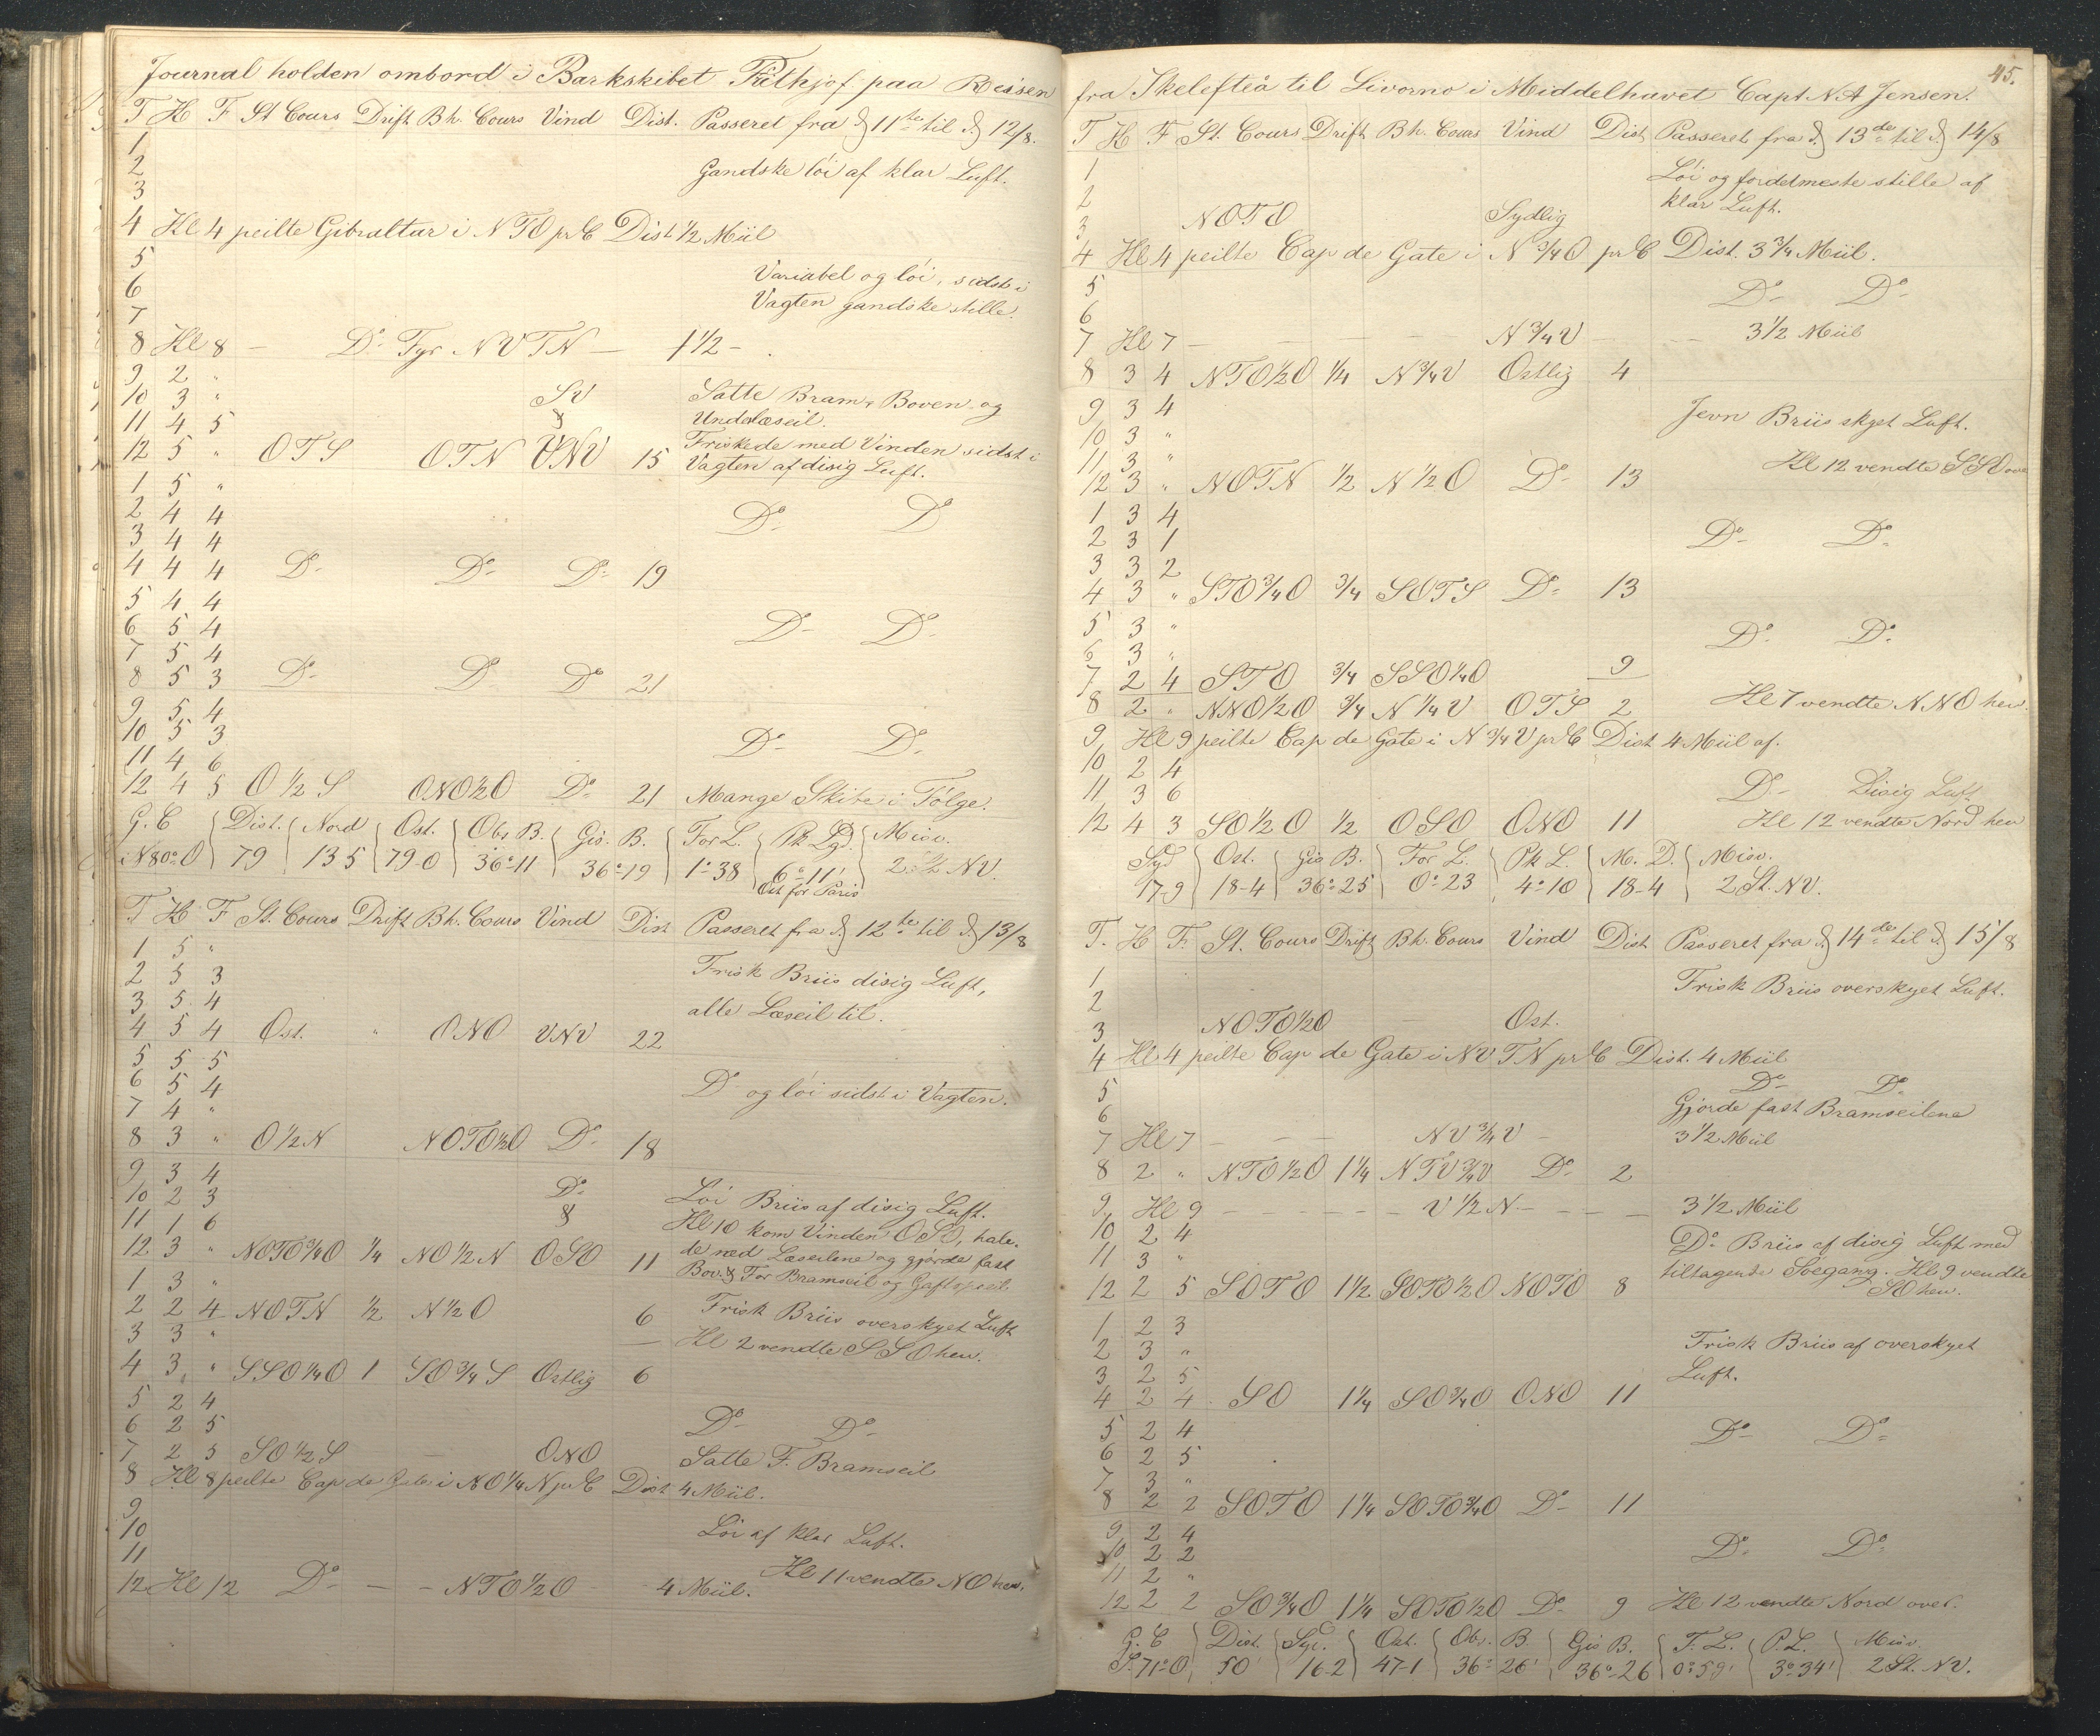 Journal holden ombord i Barkskibet Frithjof paa Reisen
T H F St Cours Drift Bh. Cours Vind Dist. Passeret fra d. 11te til d. 12/8.
1
2 Gandske löi af klar Luft.
3
4 Kl 4 peilte Gibraltar i NTO pr C Dist 1/2 Miil
5
6 Variabel og löi, sidst i
7 Vagten gandske stille.
8 Kl 8 — Do Fyr NVTN — 1 1/2 —
9 2 "
10 3 " SV Satte Bram, Boven og
11 4 5 & Underlæseil.
12 5 " OTS OTN VNV 15 Friskede med Vinden sidst i
Vagten af disig Luft.
1 5 "
2 4 4 Do Do
3 4 4
4 4 4 Do Do Do 19
5 4 4
6 5 4 Do Do
7 5 4
8 5 3 Do Do Do 21
9 5 4
10 5 3 Do Do
11 4 6
12 4 5 O 1/2 S ONO 1/2 O Do 21 Mange Skibe i Fölge.
G. C Dist. Nord Ost. Obs B. Gis. B. For L. Pk Lgd. Misv.
i N 80° O 79 13 5 79-0 36°-11 36°-19 1°-38 6°-11' 2 1/2 NV.
Ost for Paris
T H F St. Cours Drift Bh. Cours Vind Dist Passeret fra d. 12te til d. 13/8
1 5 "
2 5 3 Frisk Briis disig Luft,
3 5 4 alle Læseil til.
4 5 4 Ost. " ONO VNV 22
5 5 5
6 5 4 Do og löi sidst i Vagten.
7 4 "
8 3 " O 1/2 N NOTO 1/2 O Do 18
9 3 4
10 2 3 Do Löi Briis af disig Luft.
11 1 6 & Kl 10 kom Vinden OSO, hale-
12 3 " NOTO 3/4 O 1/4 NO 1/2 N OSO 11 de ned Læseilene og gjörde fast
Bov. & For Bramseil og Gaftopseil.
1 3 "
2 2 4 NOTN 1/2 N 1/2 O 6 Frisk Briis overskyet Luft
3 3 " Kl 2 vendte SSO hen.
4 3 " SSO 1/4 O 1 SO 3/4 S Ostlig 6
5 2 4
6 2 5 Do Do
7 2 5 SO 1/2 S — ONO Satte F. Bramseil
8 Kl 8 peilte Cap de Gate i NO 1/4 N pr C Dist 4 Miil.
9
10 Löi af klar Luft.
11 Kl 11 vendte NO hen.
12 Kl 12 Do — — NTO 1/2 O 4 Miil.
45.
fra Skelefteå til Livorno i Middelhavet Capt. N A Jensen.
T H F St. Cours Drift Bh. Cours Vind Dist Passeret fra d. 13de til d. 14/8
1 Löi og fordetmeste stille af
2 klar Luft.
3 NOTO Sydlig
4 Kl 4 peilte Cap de Gate i N 3/4 O pr C Dist. 3 3/4 Miil.
5 Do Do
6
7 Kl 7 — — — — N 3/4 V — — 3 1/2 Miil
8 3 4 NTO 1/2 O 1/4 N 3/4 V Ostlig 4
9 3 4 Jevn Briis skyet Luft.
10 3 "
11 3 " Kl 12 vendte SSO over
12 3 " NOTN 1/2 N 1/2 O Do 13
1 3 4
2 3 1 Do Do
3 3 2
4 3 " STO 3/4 O 3/4 SOTS Do 13
5 3 " Do Do
6 3 "
7 2 4 STO 3/4 SSO 1/4 O 9
8 2 " NNO 1/2 O 3/4 N 1/4 V OTS 2 Kl 7 vendte NNO hen.
9 Kl 9 peilte Cap de Gate i N 3/4 V pr C Dist 4 Miil af.
10 2 4
11 3 6 Do Disig Luft
12 4 3 SO 1/2 O 1/2 OSO ONO 11 Kl 12 vendte Nord hen
Syd Ost. Gis B. For L. Pk L. M. D. Misv.
17-9 18-4 36°-25 0°-23 4°-10 18-4 2 St. NV.
T. H F. St. Cours Drift Bh. Cours Vind Dist Passeret fra d. 14de til d. 15/8
1 Frisk Briis overskyet Luft.
2
3 NOTO 1/2 O — Ost.
4 Kl 4 peilte Cap de Gate i NVTN pr C Dist. 4 Miil
5 Do Do
6 Gjorde fast Bramseilene
7 Kl 7 — — — NV 3/4 V — 3 1/2 Miil
8 2 " NTO 1/2 O 1 1/4 NTV 3/4 V Do 2
9 Kl 9 — — — — V 1/2 N — — — 3 1/2 Miil
10 2 4 Do Briis af disig Luft med
11 3 " tiltagende Soegang. Kl 9 vendte
12 2 5 SOTO 1 1/2 SOTO 1/2 O NOTO 8 SO hen.
1 2 3
2 3 " Frisk Briis af overskyet
3 2 5 Luft.
4 2 4 SO 1 1/4 SO 3/4 O ONO 11
5 2 4 Do Do
6 2 5
7 3 "
8 2 2 SOTO 1 1/4 SOTO 3/4 O Do 11
9 2 4
10 2 2 Do Do
11 2 "
12 2 2 SO 3/4 O 1 1/4 SOTO 1/2 O Do 9 Kl 12 vendte Nord over.
G. C Dist. Syd. Ost. Obs. B. Gis B. F. L. P. L. Misv.
S. 71° O 50 16-2 47-1 36°-26' 36°-26 0°-59' 3°-34' 2 St. NV.